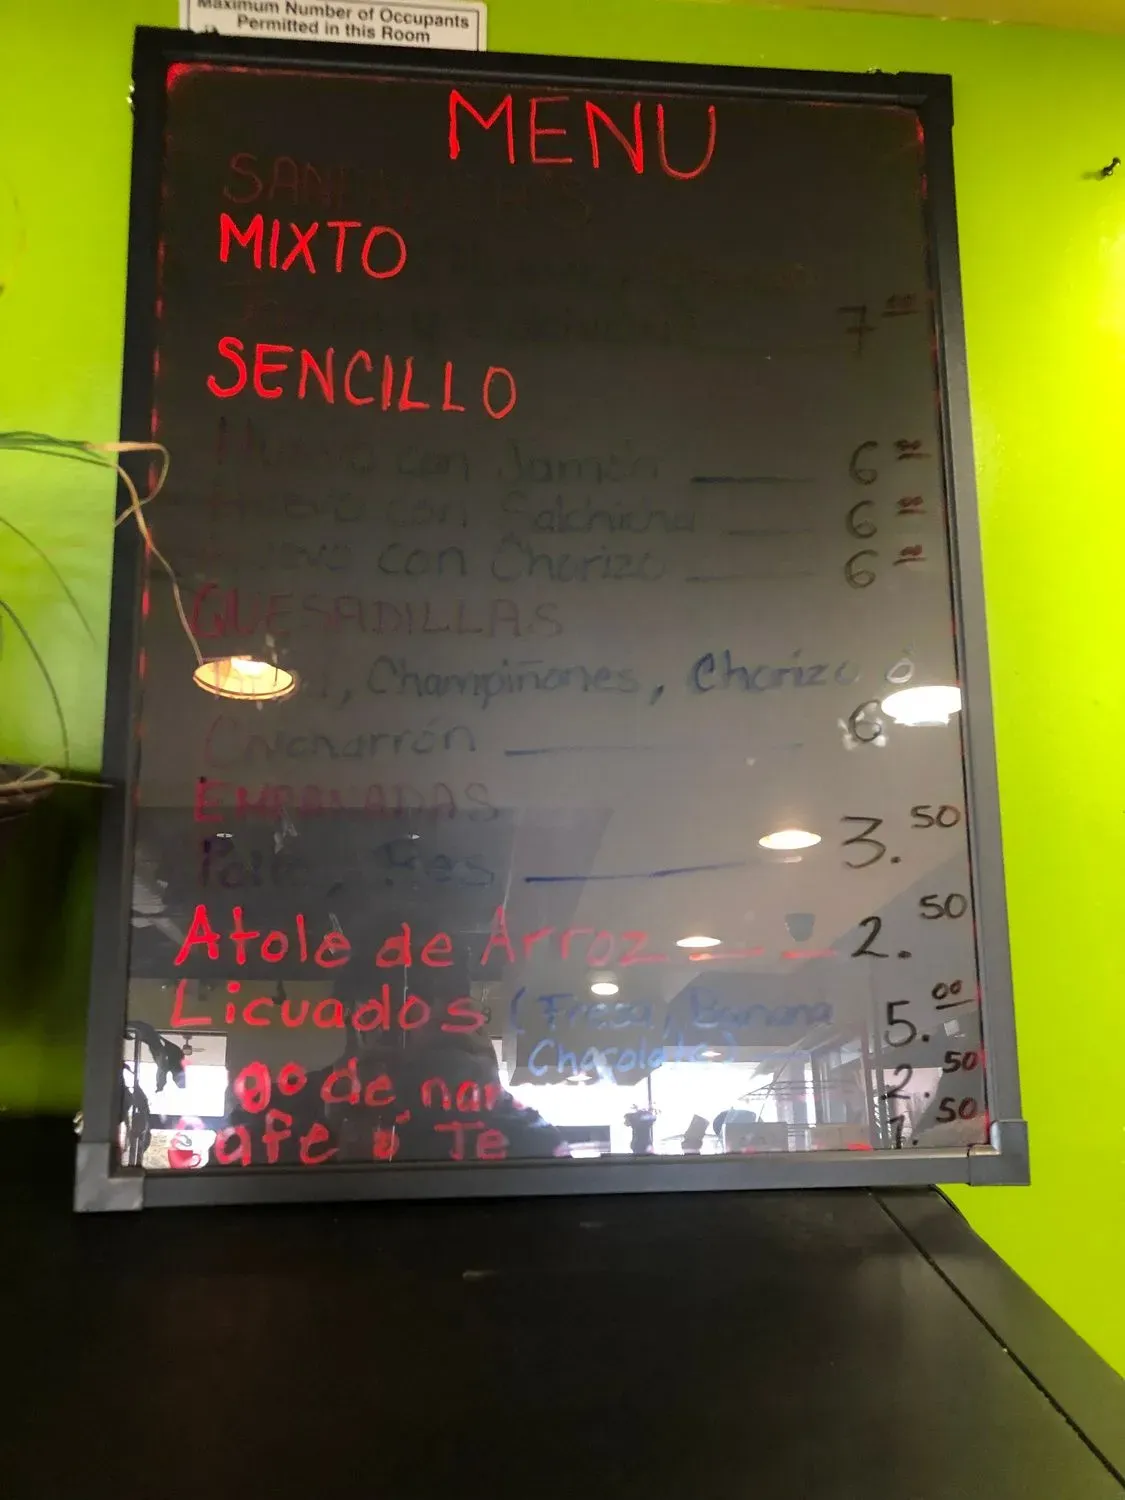 Maximum Number of Occupants
Permitted in this Room
MENU
MIXTO
7 00
SENCILLO
Huevo con Jamón 6 00
Huevo con Salchicha 6 00
Huevo con Chorizo 6 00
QUESADILLAS
, Champiñones, Chorizo ó
Chicharrón 6
EMPANADAS
Pollo, Res 3.50
Atole de Arroz 2.50
Licuados (Fresa, Banana 5.00
Chocolate)
go de nar 2.50
Cafe ó Te 1.50